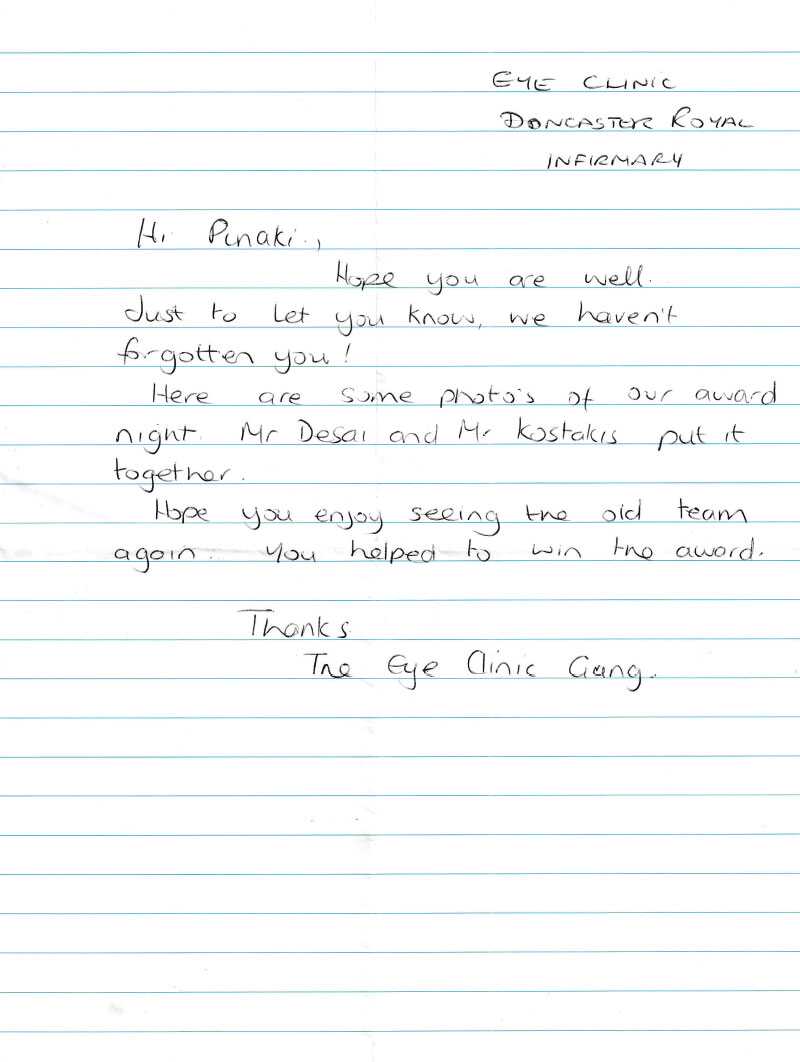 EYE CLINIC
DONCASTER ROYAL
INFIRMARY
Hi Pinaki.,
Hope you are well.
Just to let you know, we haven't
forgotten you!
Here are some photo's of our award
night. Mr Desai and Mr Kostakis put it
together.
Hope you enjoy seeing the old team
again. You helped to win the award.
Thanks
The Eye Clinic Gang.